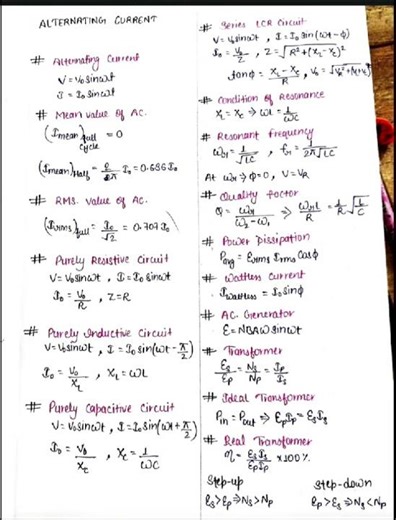 ALTERNATING CURRENT
# Alternating Current
V = V₀sinωt
I = I₀sinωt
# Mean value of AC.
(Imean)full cycle = 0
(Imean)Half = 2/π I₀ = 0.636 I₀
# RMS. value of AC.
(Irms)full = I₀/√2 = 0.707 I₀
# Purely Resistive Circuit
V = V₀sinωt , I = I₀sinωt
I₀ = V₀/R , Z = R
# Purely Inductive Circuit
V = V₀sinωt , I = I₀sin(ωt - π/2)
I₀ = V₀/X_L , X_L = ωL
# Purely Capacitive Circuit
V = V₀sinωt , I = I₀sin(ωt + π/2)
I₀ = V₀/X_c , X_c = 1/ωC
# Series LCR Circuit
V = V₀sinωt , I = I₀sin(ωt - ϕ)
I₀ = V₀/Z , Z = √R² + (X_L - X_c)²
tanϕ = X_L - X_c/R
# Condition of Resonance
X_L = X_c ⇒ ωL = 1/ωC
# Resonant frequency
ωr = 1/√LC , fr = 1/2π√LC
At ωr ⇒ ϕ = 0 , V = V_R
# Quality factor
Q = ωr/ω₂ - ω₁ ⇒ ωrL/R = 1/R √L/C
# Power Dissipation
Pavg = Erms Irms Cosϕ
# Wattless Current
Iwattless = I₀sinϕ
# AC Generator
E = NBAω sinωt
# Transformer
Es/Ep = Ns/Np = Ip/Is
# Ideal Transformer
Pin = Pout ⇒ EpIp = EsIs
# Real Transformer
η = EsIs/EpIp × 100%
Step-up
Es > Ep ⇒ Ns > Np
Step-down
Ep > Es ⇒ Ns < Np